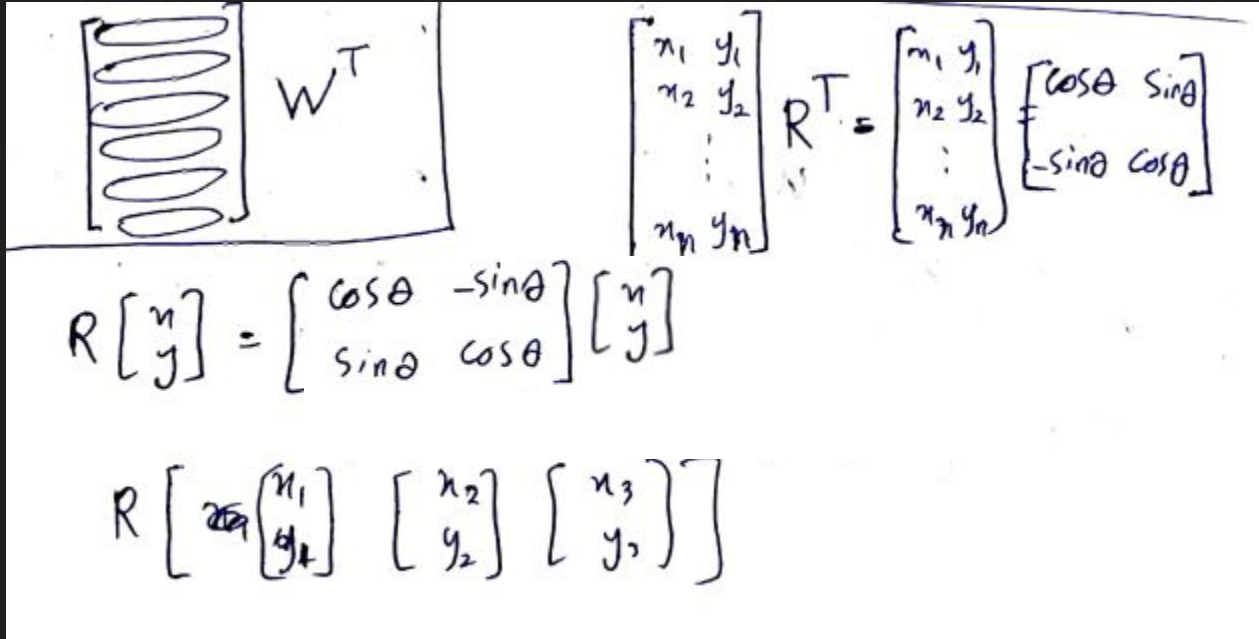 W^T
[x₁ y₁; x₂ y₂; ⋮; xₙ yₙ] R^T = [x₁ y₁; x₂ y₂; ⋮; xₙ yₙ] [cosθ sinθ; -sinθ cosθ]
R [x; y] = [cosθ -sinθ; sinθ cosθ] [x; y]
R [ [x₁; y₁] [x₂; y₂] [x₃; y₃] ]